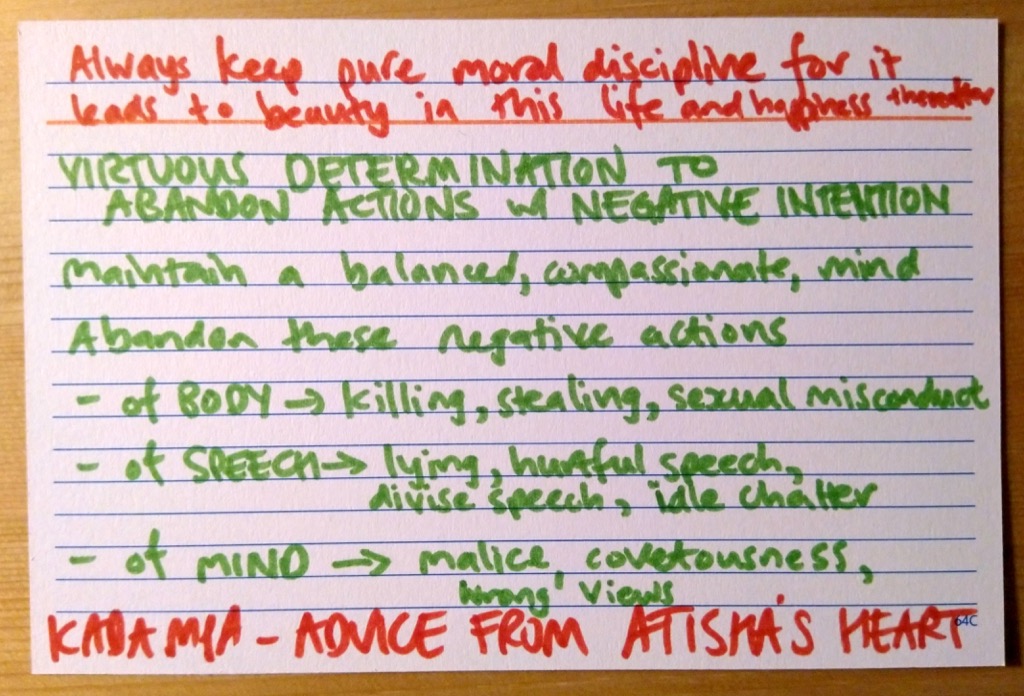 Always keep pure moral discipline for it
leads to beauty in this life and happiness thereafter
VIRTUOUS DETERMINATION TO
ABANDON ACTIONS w/ NEGATIVE INTENTION
Maintain a balanced, compassionate, mind
Abandon these negative actions
- of BODY → killing, stealing, sexual misconduct
- of SPEECH → lying, hurtful speech,
divise speech, idle chatter
- of MIND → malice, covetousness,
wrong views
KADAMPA - ADVICE FROM ATISHA'S HEART
64C